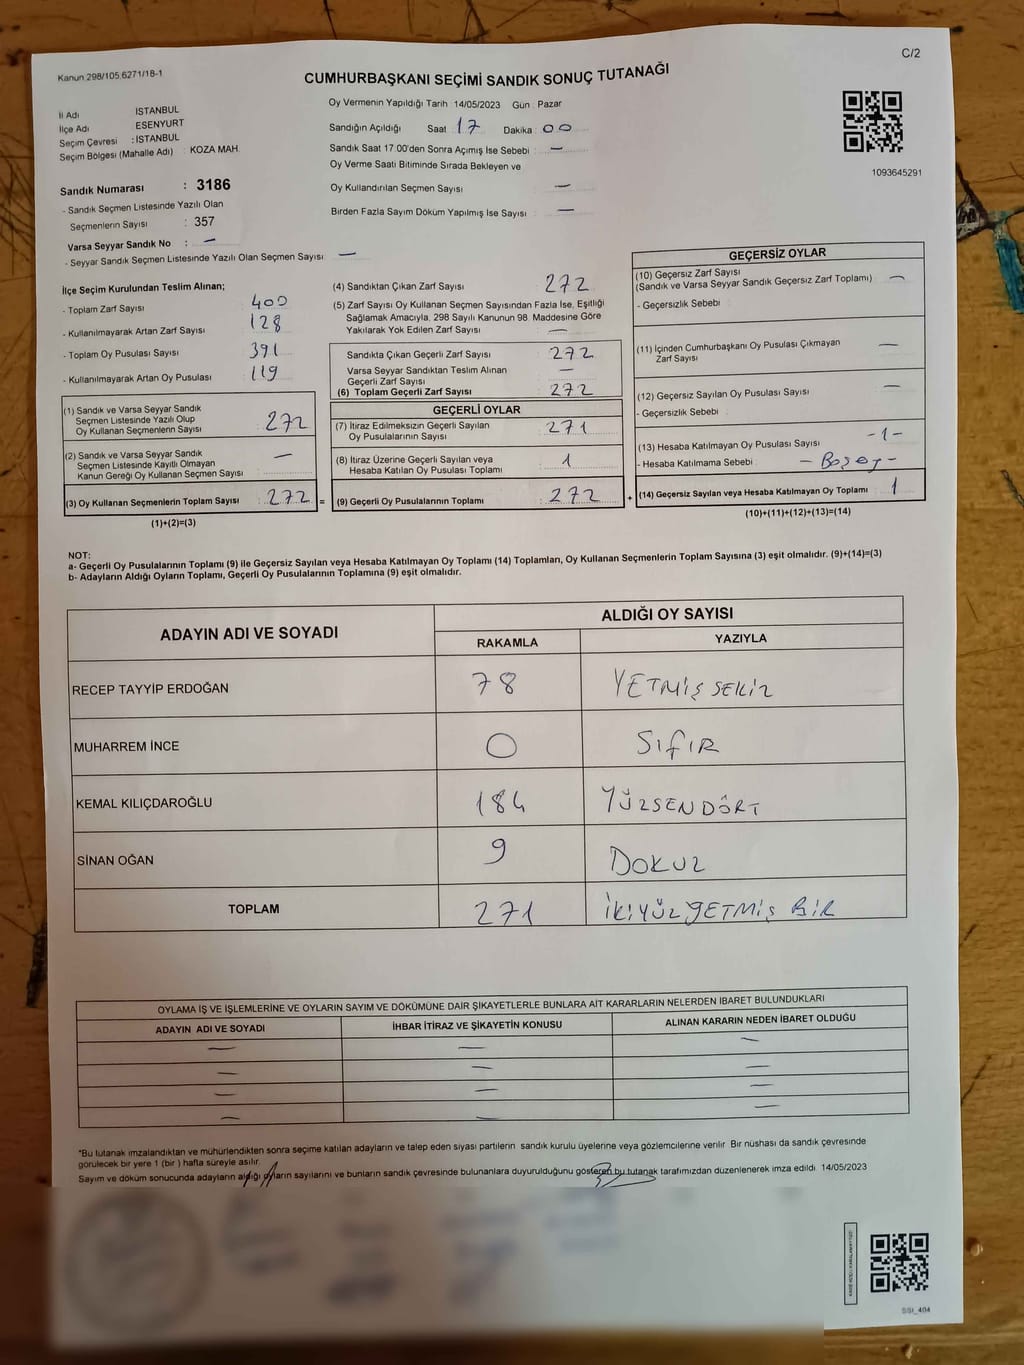 Kanun 298/105 6271/18-1
C/2
CUMHURBAŞKANI SEÇİMİ SANDIK SONUÇ TUTANAĞI
İl Adı İSTANBUL
İlçe Adı ESENYURT
Seçim Çevresi : İSTANBUL
Seçim Bölgesi (Mahalle Adı) : KOZA MAH.
Sandık Numarası : 3186
- Sandık Seçmen Listesinde Yazılı Olan
Seçmenlerin Sayısı : 357
Varsa Seyyar Sandık No : —
- Seyyar Sandık Seçmen Listesinde Yazılı Olan Seçmen Sayısı —
Oy Vermenin Yapıldığı Tarih 14/05/2023 Gün : Pazar
Sandığın Açıldığı Saat : 17 Dakika : 00
Sandık Saat 17.00'den Sonra Açımış İse Sebebi : —
Oy Verme Saati Bitiminde Sırada Bekleyen ve
Oy Kullandırılan Seçmen Sayısı —
Birden Fazla Sayım Döküm Yapılmış İse Sayısı : —
1093645291
İlçe Seçim Kurulundan Teslim Alınan;
- Toplam Zarf Sayısı : 400
- Kullanılmayarak Artan Zarf Sayısı : 128
- Toplam Oy Pusulası Sayısı : 391
- Kullanılmayarak Artan Oy Pusulası : 119
(1) Sandık ve Varsa Seyyar Sandık
Seçmen Listesinde Yazılı Olup
Oy Kullanan Seçmenlerin Sayısı : 272
(2) Sandık ve Varsa Seyyar Sandık
Seçmen Listesinde Kayıtlı Olmayan
Kanun Gereği Oy Kullanan Seçmen Sayısı : —
(3) Oy Kullanan Seçmenlerin Toplam Sayısı : 272 =
(1)+(2)=(3)
(4) Sandıktan Çıkan Zarf Sayısı : 272
(5) Zarf Sayısı Oy Kullanan Seçmen Sayısından Fazla İse, Eşitliği
Sağlamak Amacıyla, 298 Sayılı Kanunun 98. Maddesine Göre
Yakılarak Yok Edilen Zarf Sayısı : —
Sandıkta Çıkan Geçerli Zarf Sayısı : 272
Varsa Seyyar Sandıktan Teslim Alınan
Geçerli Zarf Sayısı : —
(6) Toplam Geçerli Zarf Sayısı : 272
GEÇERLİ OYLAR
(7) İtiraz Edilmeksizin Geçerli Sayılan
Oy Pusulalarının Sayısı : 271
(8) İtiraz Üzerine Geçerli Sayılan veya
Hesaba Katılan Oy Pusulası Toplamı : 1
(9) Geçerli Oy Pusulalarının Toplamı : 272 +
GEÇERSİZ OYLAR
(10) Geçersiz Zarf Sayısı
(Sandık ve Varsa Seyyar Sandık Geçersiz Zarf Toplamı) : —
- Geçersizlik Sebebi :
(11) İçinden Cumhurbaşkanı Oy Pusulası Çıkmayan
Zarf Sayısı : —
(12) Geçersiz Sayılan Oy Pusulası Sayısı : —
- Geçersizlik Sebebi :
(13) Hesaba Katılmayan Oy Pusulası Sayısı : -1-
- Hesaba Katılmama Sebebi :
(14) Geçersiz Sayılan veya Hesaba Katılmayan Oy Toplamı : 1
(10)+(11)+(12)+(13)=(14)
NOT:
a- Geçerli Oy Pusulalarının Toplamı (9) ile Geçersiz Sayılan veya Hesaba Katılmayan Oy Toplamı (14) Toplamları, Oy Kullanan Seçmenlerin Toplam Sayısına (3) eşit olmalıdır. (9)+(14)=(3)
b- Adayların Aldığı Oyların Toplamı, Geçerli Oy Pusulalarının Toplamına (9) eşit olmalıdır.
ADAYIN ADI VE SOYADI
ALDIĞI OY SAYISI
RAKAMLA YAZIYLA
RECEP TAYYİP ERDOĞAN 78 YETMİŞ SEKİZ
MUHARREM İNCE 0 SIFIR
KEMAL KILIÇDAROĞLU 184 YÜZSENDÖRT
SİNAN OĞAN 9 DOKUZ
TOPLAM 271 İKİYÜZYETMİŞ BİR
OYLAMA İŞ VE İŞLEMLERİNE VE OYLARIN SAYIM VE DÖKÜMÜNE DAİR ŞİKAYETLERLE BUNLARA AİT KARARLARIN NELERDEN İBARET BULUNDUKLARI
ADAYIN ADI VE SOYADI İHBAR İTİRAZ VE ŞİKAYETİN KONUSU ALINAN KARARIN NEDEN İBARET OLDUĞU
— — —
— — —
— — —
— — —
*Bu tutanak imzalandıktan ve mühürlendikten sonra seçime katılan adayların ve talep eden siyasi partilerin sandık kurulu üyelerine veya gözlemcilerine verilir. Bir nüshası da sandık çevresinde
görülecek bir yere 1 (bir) hafta süreyle asılır.
Sayım ve döküm sonucunda adayların aldığı oyların sayılarını ve bunların sandık çevresinde bulunanlara duyurulduğunu gösteren bu tutanak tarafımızdan düzenlenerek imza edildi. 14/05/2023
SSI_404